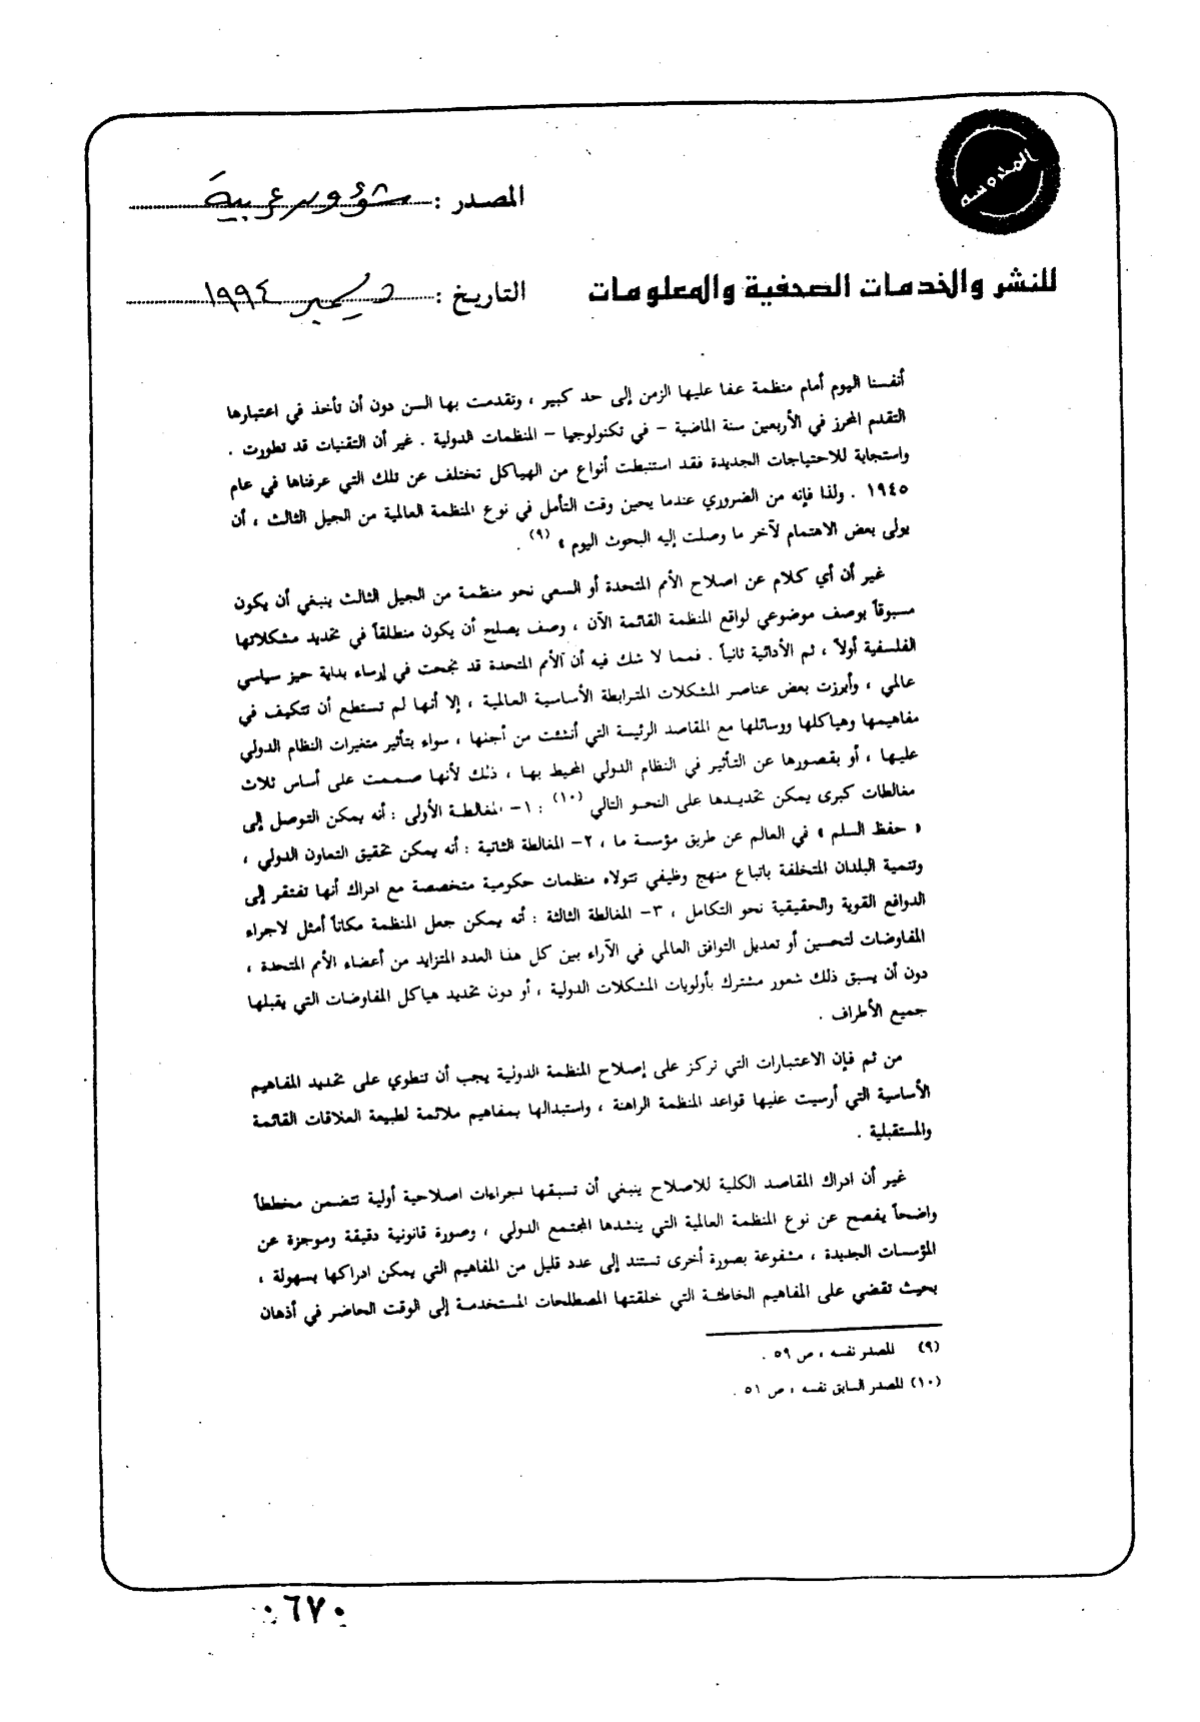 المدوسه
المصدر : شؤون عربية
للنشر والخدمات الصحفية والمعلومات
التاريخ : ديسمبر ١٩٩٤
أنفسنا اليوم أمام منظمة عفا عليها الزمن إلى حد كبير ، وتقدمت بها السن دون أن تأخذ في اعتبارها
التقدم المحرز في الأربعين سنة الماضية – في تكنولوجيا – المنظمات الدولية . غير أن التقنيات قد تطورت .
واستجابة للاحتياجات الجديدة فقد استنبطت أنواع من الهياكل تختلف عن تلك التي عرفناها في عام
١٩٤٥ . ولذا فإنه من الضروري عندما يحين وقت التأمل في نوع المنظمة العالمية من الجيل الثالث ، أن
يولى بعض الاهتمام لآخر ما وصلت إليه البحوث اليوم » (٩) .
غير أن أي كلام عن اصلاح الأمم المتحدة أو السعي نحو منظمة من الجيل الثالث ينبغي أن يكون
مسبوقاً بوصف موضوعي لواقع المنظمة القائمة الآن ، وصف يصلح أن يكون منطلقاً في تحديد مشكلاتها
الفلسفية أولاً ، ثم الأدائية ثانياً . فمما لا شك فيه أن الأمم المتحدة قد نجحت في إرساء بداية حيز سياسي
عالمي ، وأبرزت بعض عناصر المشكلات المترابطة الأساسية العالمية ، إلا أنها لم تستطع أن تتكيف في
مفاهيمها وهياكلها ووسائلها مع المقاصد الرئيسة التي أنشئت من أجلها ، سواء بتأثير متغيرات النظام الدولي
عليها ، أو بقصورها عن التأثير في النظام الدولي المحيط بها ، ذلك لأنها صممت على أساس ثلاث
مغالطات كبرى يمكن تحديدها على النحو التالي (١٠) : ١– المغالطة الأولى : أنه يمكن التوصل إلى
« حفظ السلم » في العالم عن طريق مؤسسة ما ، ٢– المغالطة الثانية : أنه يمكن تحقيق التعاون الدولي ،
وتنمية البلدان المتخلفة باتباع منهج وظيفي تتولاه منظمات حكومية متخصصة مع ادراك أنها تفتقر إلى
الدوافع القوية والحقيقية نحو التكامل ، ٣– المغالطة الثالثة : أنه يمكن جعل المنظمة مكاناً أمثل لاجراء
المفاوضات لتحسين أو تعديل التوافق العالمي في الآراء بين كل هذا العدد المتزايد من أعضاء الأمم المتحدة ،
دون أن يسبق ذلك شعور مشترك بأولويات المشكلات الدولية ، أو دون تحديد هياكل المفاوضات التي يقبلها
جميع الأطراف .
من ثم فإن الاعتبارات التي تركز على إصلاح المنظمة الدولية يجب أن تنطوي على تحديد المفاهيم
الأساسية التي أرسيت عليها قواعد المنظمة الراهنة ، واستبدالها بمفاهيم ملائمة لطبيعة العلاقات القائمة
والمستقبلية .
غير أن ادراك المقاصد الكلية للاصلاح ينبغي أن تسبقها اجراءات اصلاحية أولية تتضمن مخططاً
واضحاً يفصح عن نوع المنظمة العالمية التي ينشدها المجتمع الدولي ، وصورة قانونية دقيقة وموجزة عن
المؤسسات الجديدة ، مشفوعة بصورة أخرى تستند إلى عدد قليل من المفاهيم التي يمكن ادراكها بسهولة ،
بحيث تقضي على المفاهيم الخاطئة التي خلقتها المصطلحات المستخدمة إلى الوقت الحاضر في أذهان
(٩) المصدر نفسه ، ص ٥٩ .
(١٠) المصدر السابق نفسه ، ص ٥١ .
٠٦٧٠